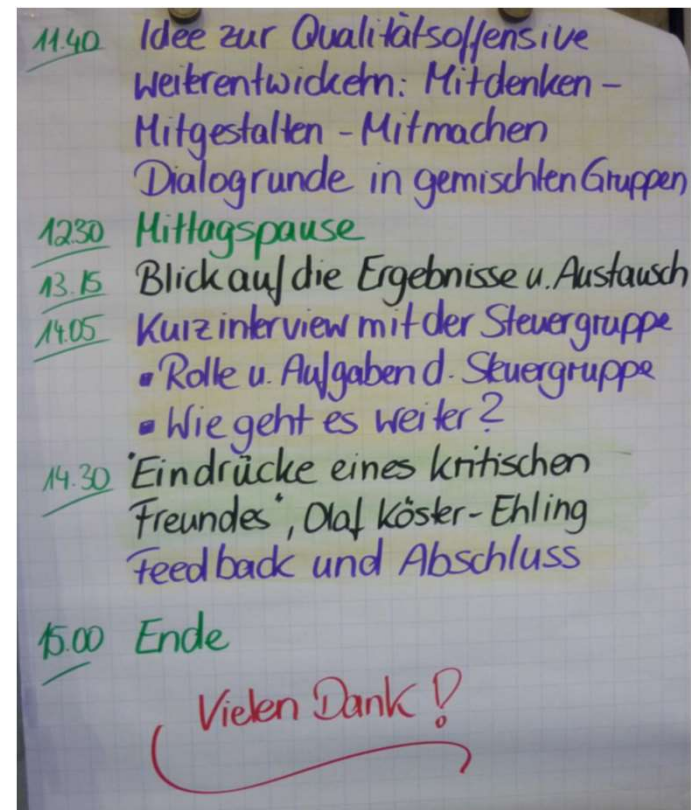 11.40 Idee zur Qualitätsoffensive
weiterentwickeln: Mitdenken -
Mitgestalten - Mitmachen
Dialogrunde in gemischten Gruppen
1230 Mittagspause
13.15 Blick auf die Ergebnisse u. Austausch
14.05 Kurzinterview mit der Steuergruppe
▪ Rolle u. Aufgaben d. Steuergruppe
▪ Wie geht es weiter?
14.30 "Eindrücke eines kritischen
Freundes", Olaf Köster-Ehling
Feedback und Abschluss
15.00 Ende
Vielen Dank!